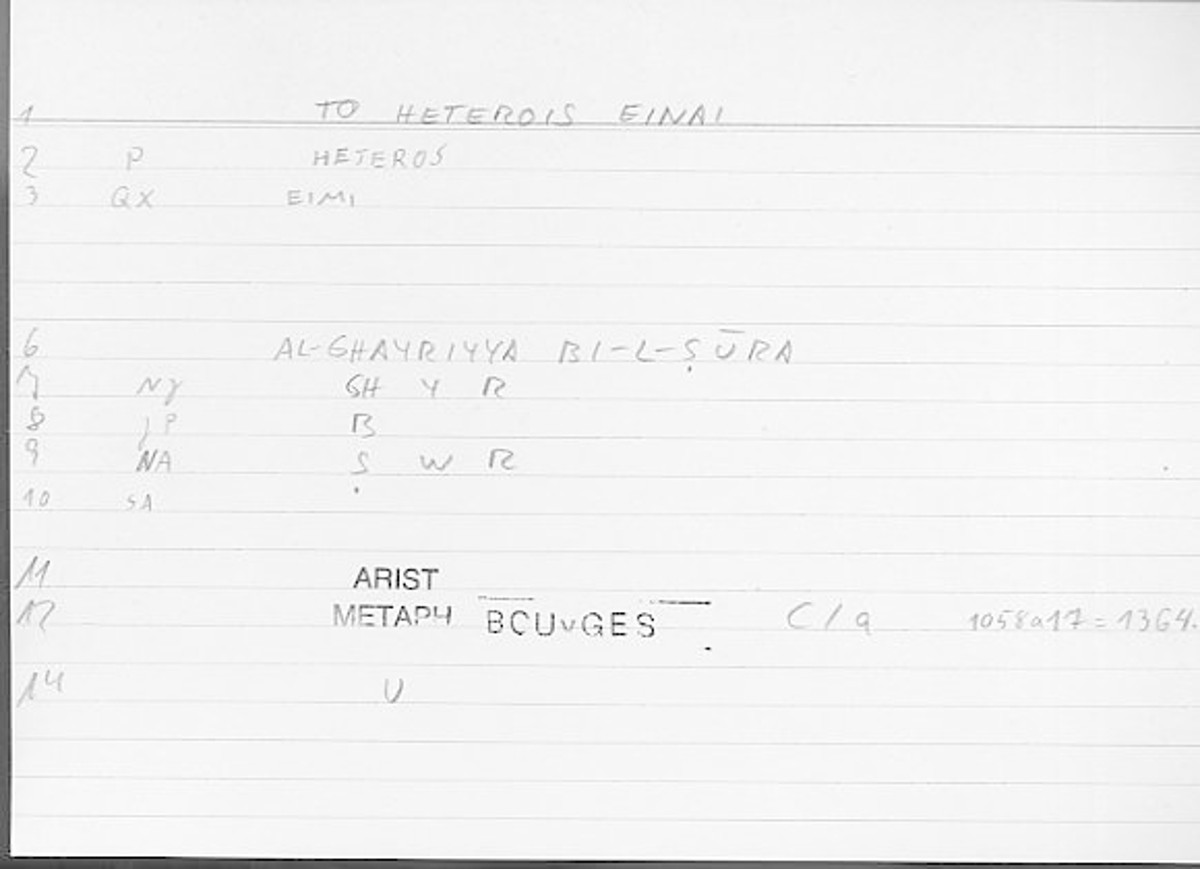 1 TO HETEROIS EINAI
2 P HETEROS
3 QX EIMI
6 AL-GHAYRIYYA BI-L-ṢŪRA
7 Nj GH Y R
8 jP B
9 NA Ṣ W R
10 SA
11 ARIST
12 METAPH BCUvGES C/a 1058a17 = 1364.
14 U